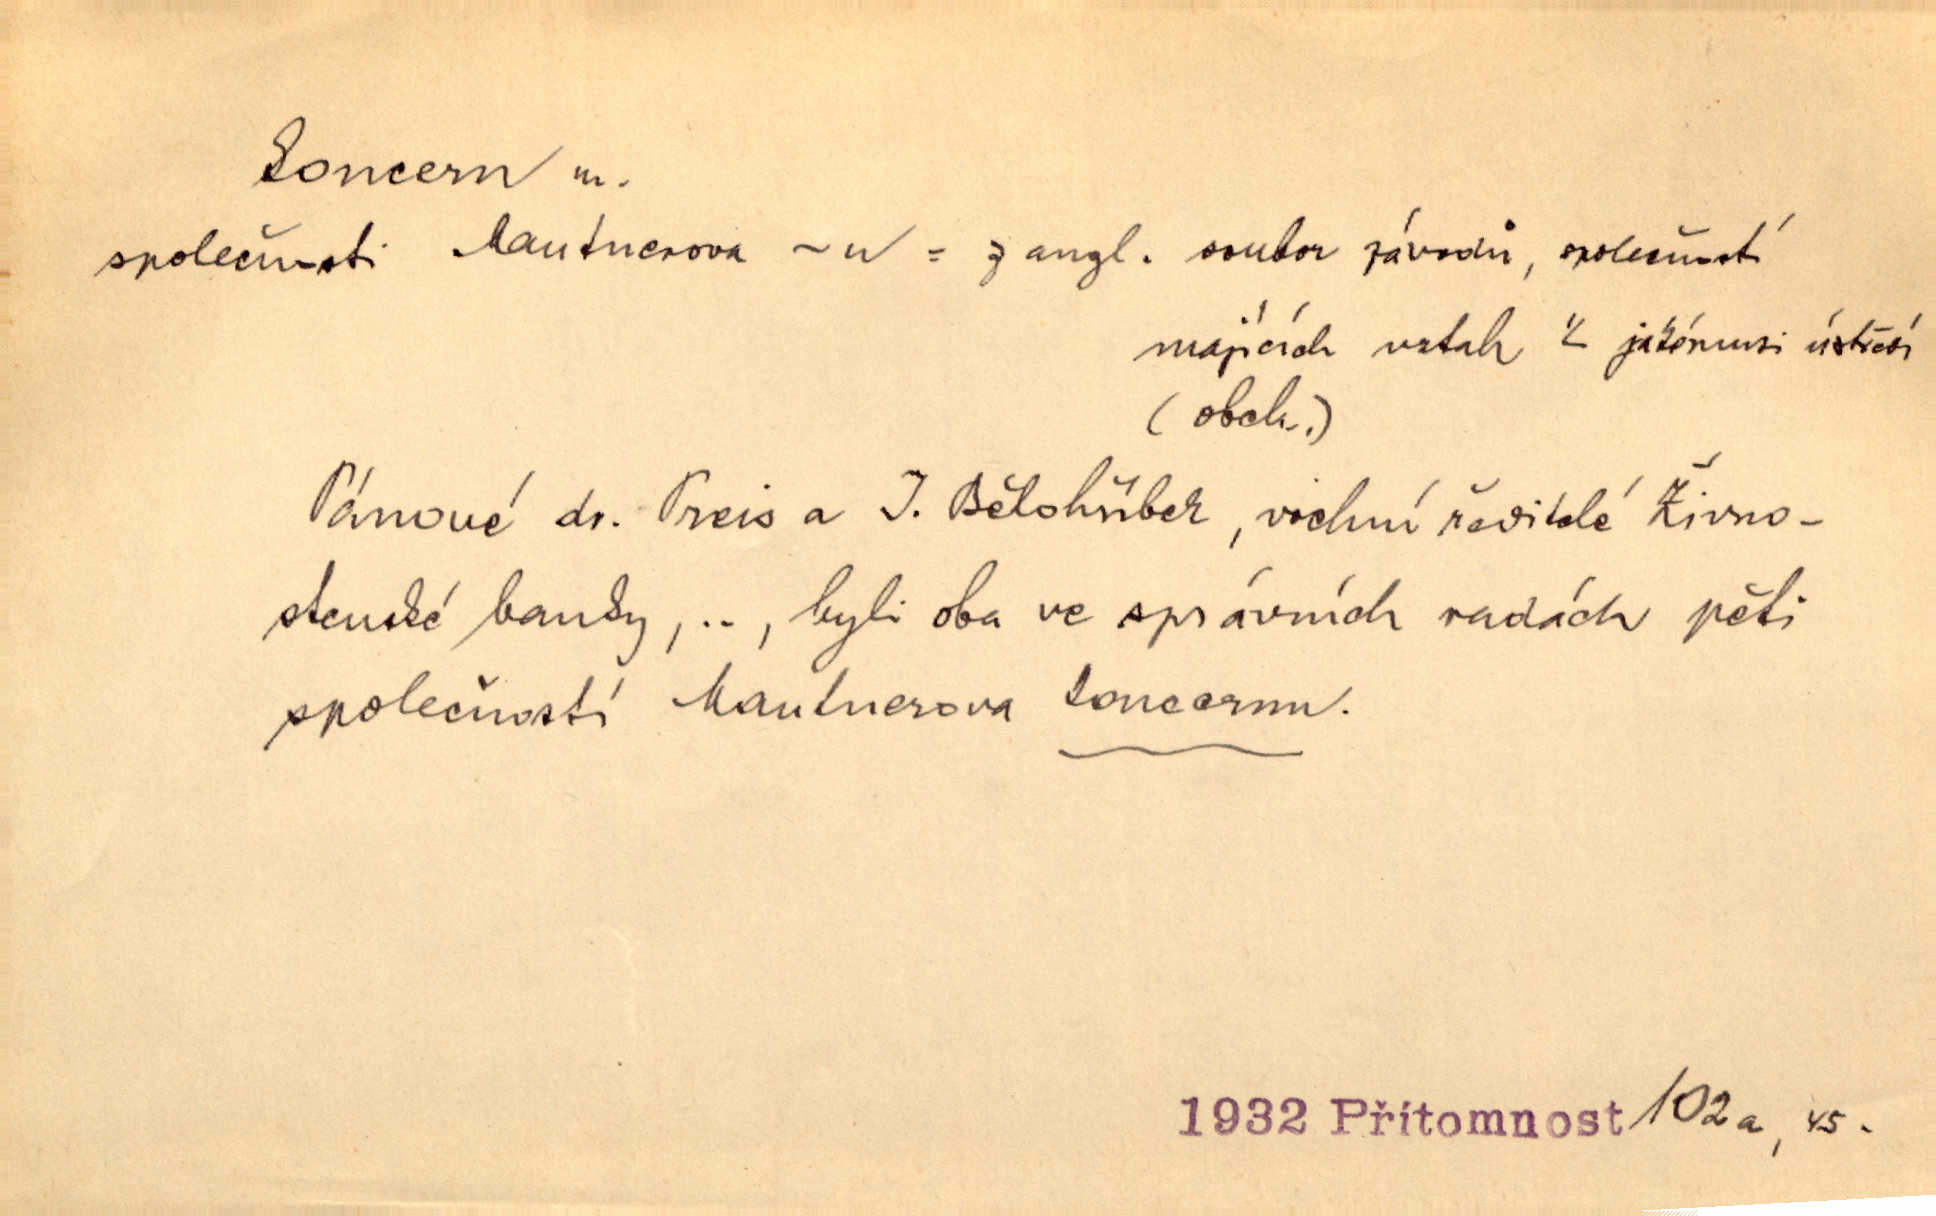 koncern m.
společnosti Mautnerova ~u = z angl. soubor závodů, společností
majících vztah k jakémusi ústředí
(obch.)
Pánové dr. Preis a J. Bělohříbek, vrchní ředitelé Živno-
stenské banky, .., byli oba ve správních radách pěti
společností Mautnerova koncernu.
1932 Přítomnost 102a, 45.